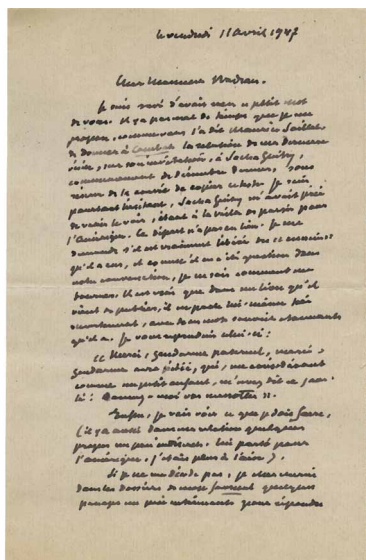 le vendredi 11 avril 1947
Cher Monsieur Nadeau.
Je suis ravi d'avoir reçu un petit mot
de vous. Il y a pas mal de temps que je me
propose, comme vous l'a dit Maurice Saillet
de donner à Combat la relation de ma dernière
visite, sur son invitation, à Sacha Guitry,
commencement de décembre dernier, sous
réserve de la corvée de copier ce texte. Je suis
pourtant hésitant, Sacha Guitry m'avait prié
de venir le voir, étant à la veille de partir pour
l'Amérique. Le départ n'a pas eu lieu. Je me
demande s'il est vraiment libéré des « ennuis »
qu'il a eus, et comme il en a été question dans
notre conversation, je ne sais comment me
tourner. Il est vrai que dans un livre qu'il
vient de publier, il en parle lui-même très
ouvertement, avec dans mots souvent étonnants
qu'il a. Je vous reproduis celui-ci :
« Merci, gendarme paternel, merci
gendarme aux pitié, qui, me considérant
comme un petit enfant, m'avez dit ce jour
là : Donnez-moi vos menottes ».
Enfin, je vais voir ce que je dois faire,
(il y a aussi dans ma relation quelques
propos un peu intimes. Lui parti pour
l'Amérique, j'étais plus à l'aise).
Si je me décide pas, je chercherai
dans les dossiers de mon Journal quelques
passages un peu intéressants pour répondre